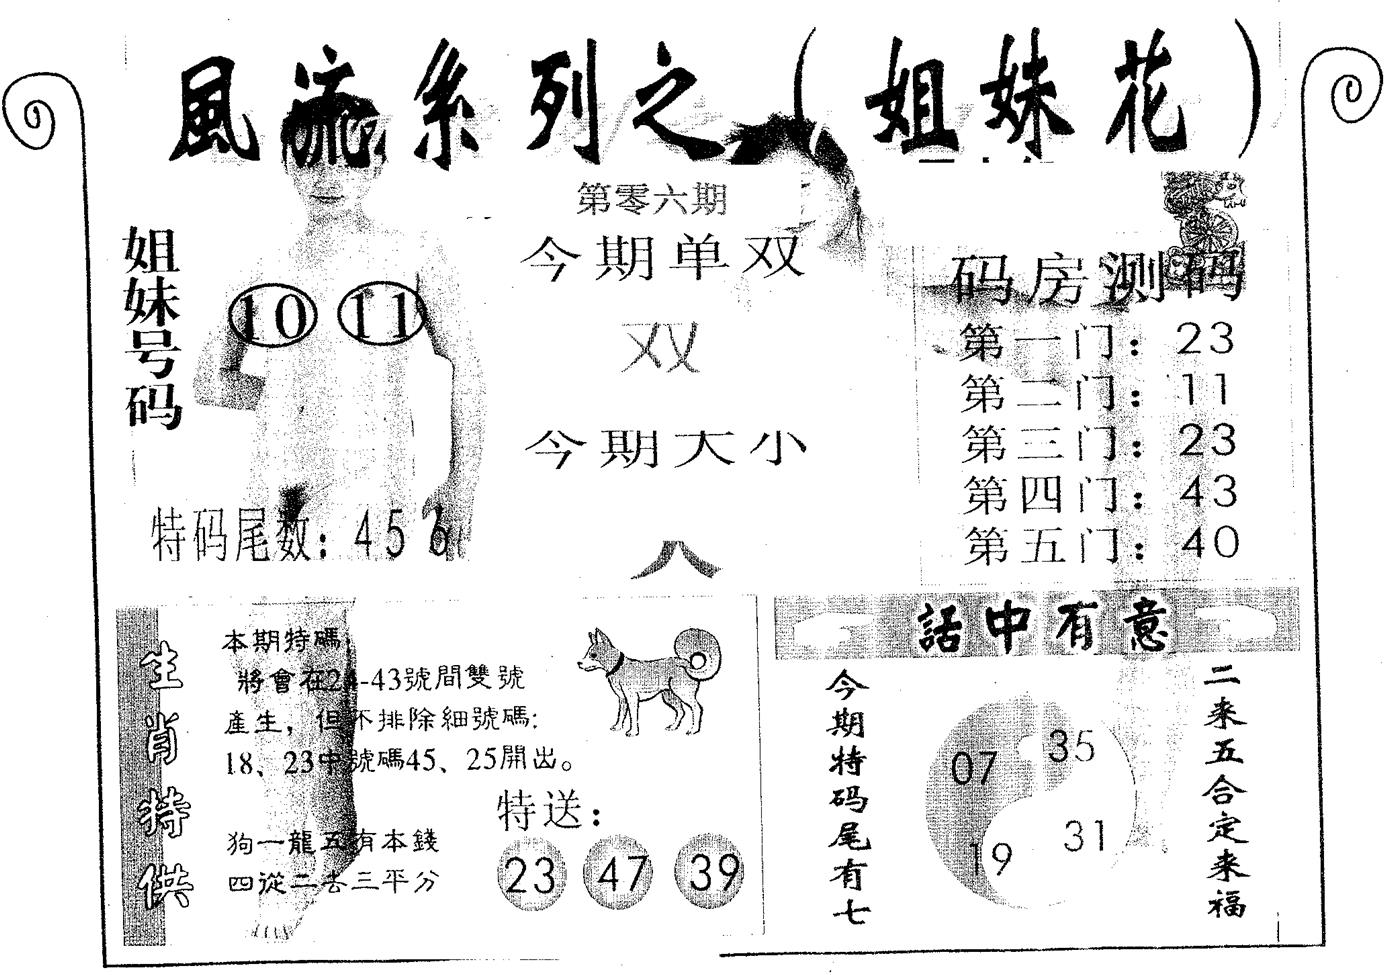 風流系列之（姐妹花）
第零六期
姐妹号码
10 11
特码尾数：456
今期单双
双
今期大小
大
码房测码
第一门：23
第二门：11
第三门：23
第四门：43
第五门：40
生肖特供
本期特碼，
將會在24-43號間雙號
產生，但不排除細號碼：
18、23中號碼45、25開出。
狗一龍五有本錢
四從二去三平分
特送：
23 47 39
話中有意
今期特码尾有七
07 35
19 31
二来五合定来福